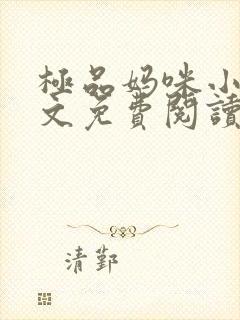 極品妈咪小
文免費閱讀
清鄞